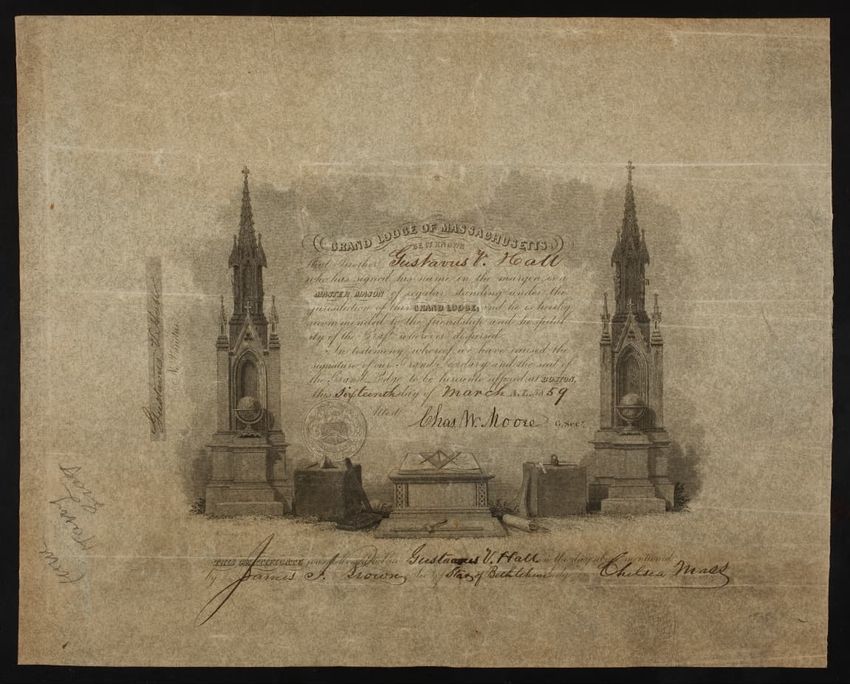 GRAND LODGE OF MASSACHUSETTS
BE IT KNOWN
that Brother Gustavus V. Hall
who has signed his name in the margin, is a
MASTER MASON of regular standing under the
jurisdiction of this GRAND LODGE, and he is hereby
recommended to the friendship and hospital
ity of the Craft wherever dispersed.
In testimony whereof we have caused the
signature of our Grand Secretary and the seal of
the Grand Lodge to be hereunto affixed at BOSTON,
this Sixteenth day of March 59
Attest
Chas W. Moore G. Sec.
Gustavus V. Hall
THIS CERTIFICATE was Gustavus V. Hall in the day above mentioned
by James I. Brown, Sec'y of Star of Bethlehem Chelsea Mass